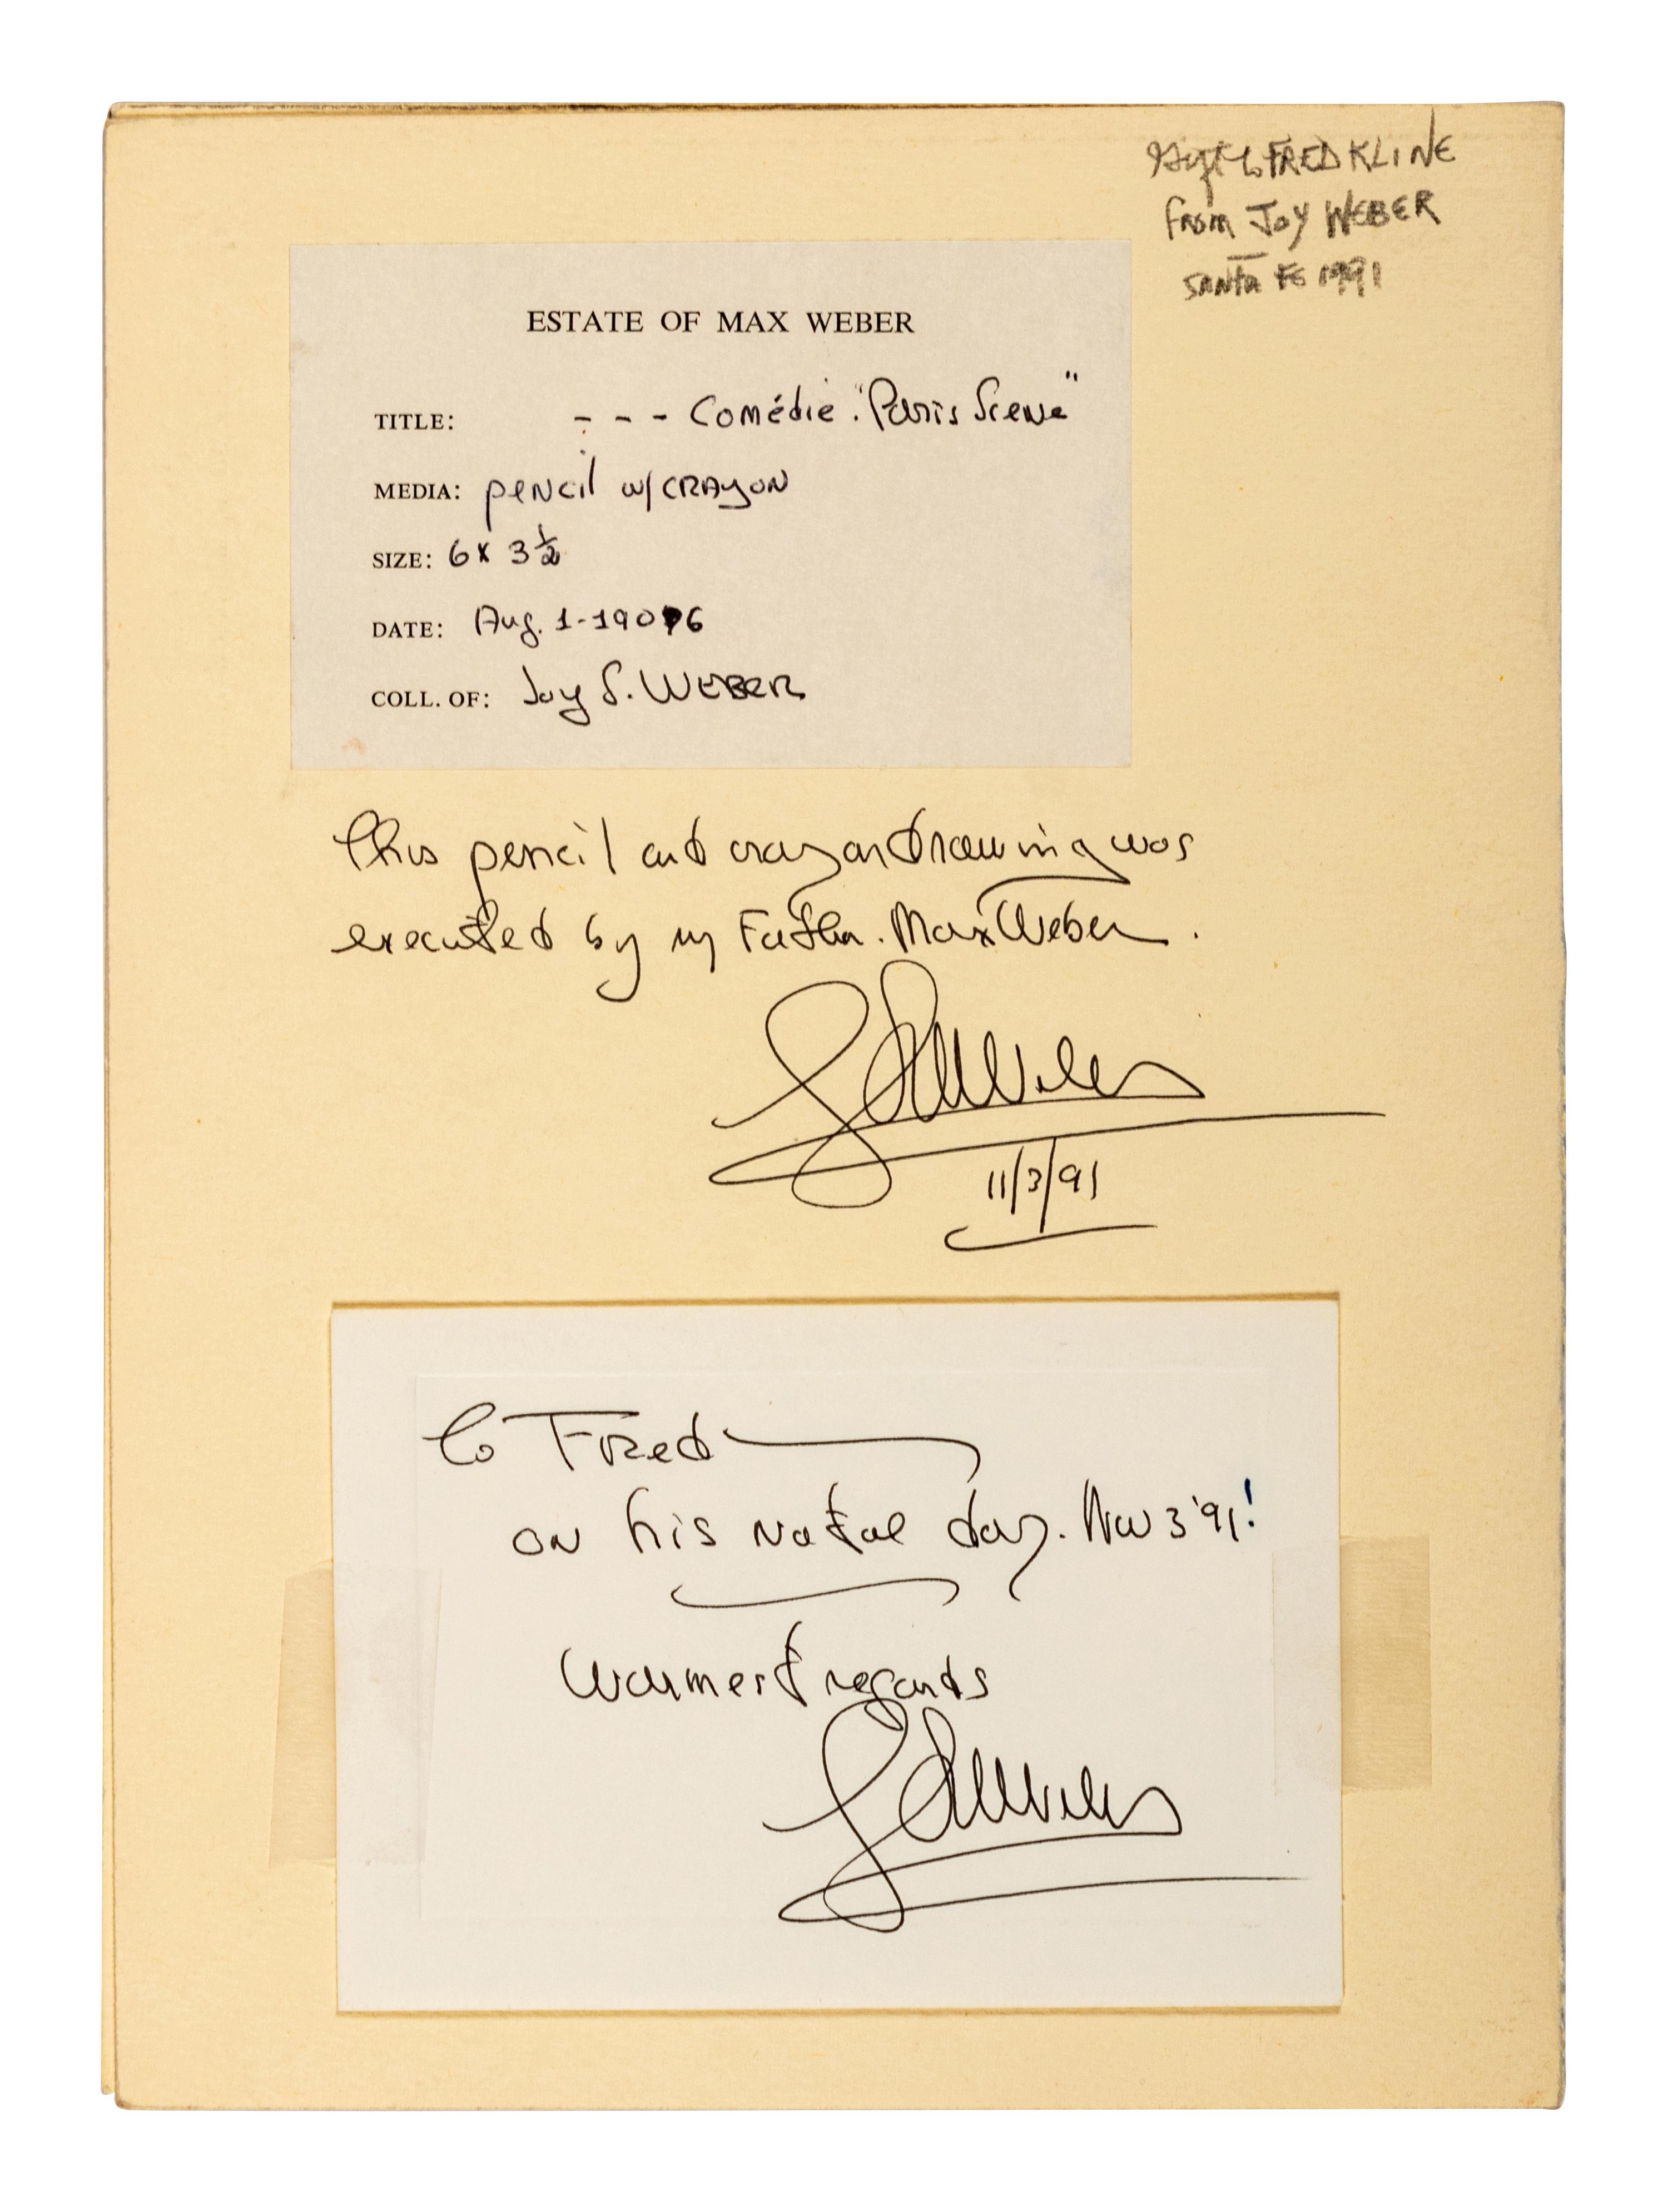 Gift to FRED KLINE
From JOY WEBER
SANTA FE 1991
ESTATE OF MAX WEBER
TITLE: - - - Comédie. "Paris Scene"
MEDIA: pencil w/ CRAYON
SIZE: 6 x 3 1/2
DATE: Aug. 1-1906
COLL. OF: Joy S. WEBER
This pencil and crayon drawing was
executed by my Father. Max Weber.
11/3/91
To Fred
on his natal day. Nov 3 '91!
Warmest regards